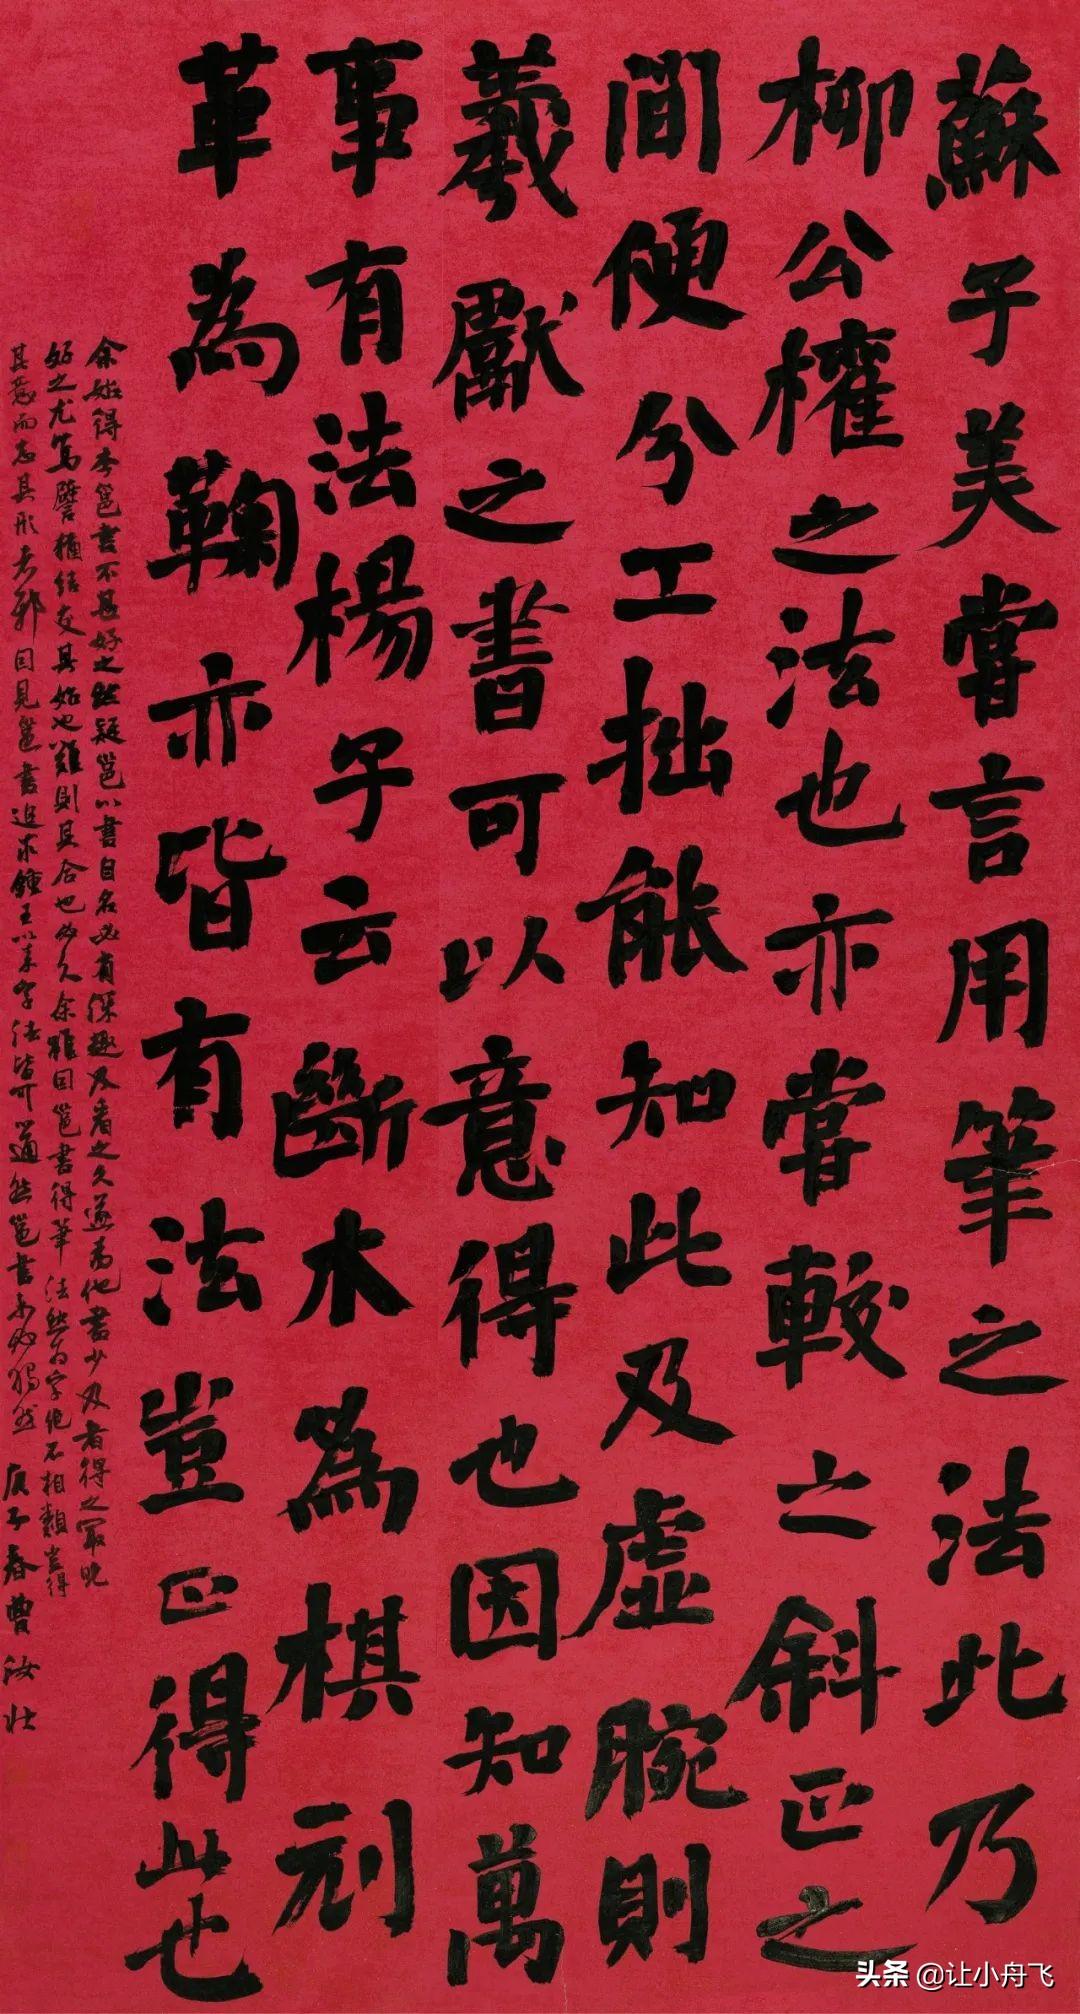 蘇子美嘗言用筆之法此乃
柳公權之法也亦嘗較之斜正之
間便分工拙能知此及虛腕則
羲獻之書可以意得也因知萬
事有法楊子云斷木為棋刓
革為鞠亦皆有法豈正得此也
余始得李邕書不甚好之然疑邕以書自名必有深趣及看之久遂為他書少及者得之最晚
好之尤篤譬猶結交其始也難則其合也必久余雖因邕書得筆法然為字絕不相類豈得
其意而忘其形者邪因見邕書追求鍾王以來字法皆可通然邕書未必獨然 庚子春曹汝壯
头条 @让小舟飞